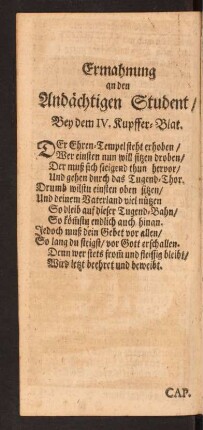 Ermahnung
an den
Andächtigen Student /
Bey dem IV. Kupffer-Blat.
DEr Ehren-Tempel steht erhoben /
Wer einsten nun will sitzen droben /
Der muß sich steigend thun hervor /
Und gehen durch das Tugend-Thor.
Drumb wilstu einsten oben sitzen /
Und deinem Vaterland viel nützen
So bleib auf dieser Tugend-Bahn /
So kömstu endlich auch hinan.
Jedoch muß dein Gebet vor allen /
So lang du steigst / vor Gott erschallen.
Denn wer stets from̃ und fleissig bleibt /
Wird letzt beehret und beweibt.
CAP.